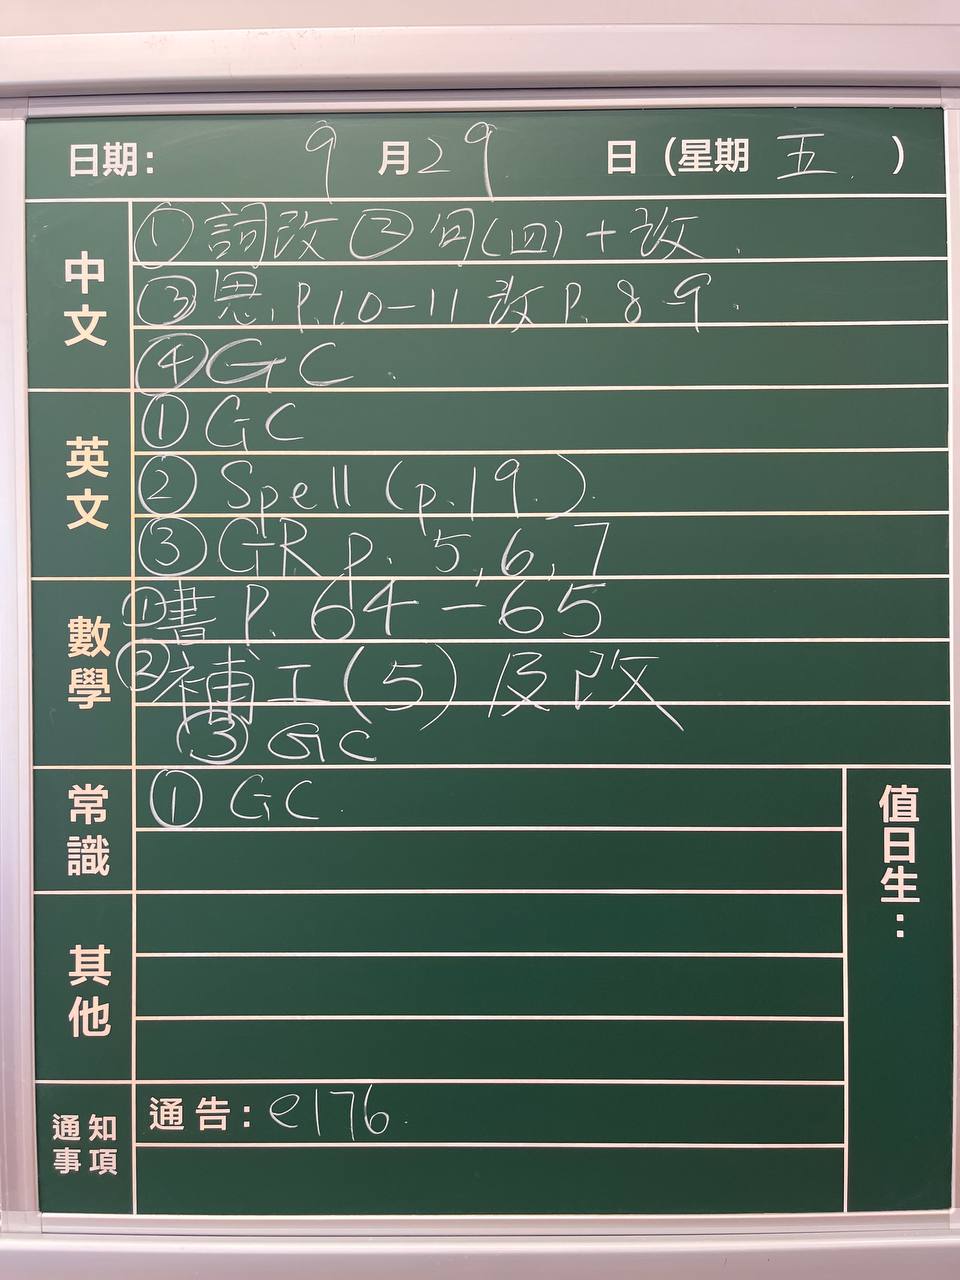 日期： 9 月 29 日 (星期 五 )
中文
① 詞改 ② 句(四) + 改.
③ 思. P.10-11 改 P. 8-9.
④ GC.
英文
① GC
② Spell (p.19.).
③ GR p. 5,6,7
數學
① 書 P. 64-65
② 補工(5) 及改
③ GC
常識
① GC.
值日生：
其他
通知事項
通告： e176.